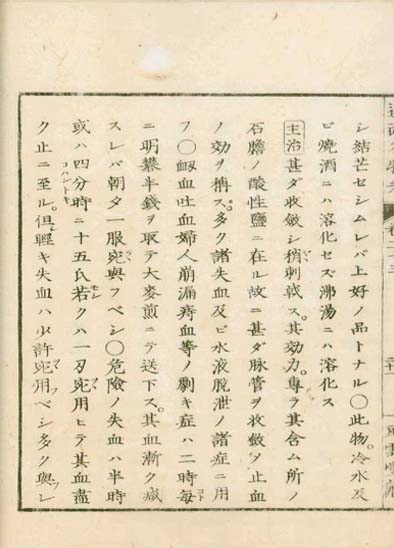 シ結芒セシムレバ上好ノ品トナル〇此物。冷水及
ビ焼酒ニハ溶化セズ沸湯ニハ溶化ス
主治甚ダ收斂シ稍刺戟ス。其効力。専ラ其含ム所ノ
石膽ノ酸性鹽ニ在ル故ニ甚ダ脉管ヲ收斂シ止血
ノ効ヲ稱ス。多ク諸失血及ビ水液脱泄ノ諸症ニ用
フ〇衂血吐血婦人崩漏痔血等ノ劇キ症ハ二時毎
ゴト
ニ明礬半錢ヲ取テ大麥煎ニテ送下ス。其血漸ク減
スレバ朝夕一服宛與フベシ〇危険ノ失血ハ半時
或ハ四分時ニ十五氏若クハ一刃宛用ヒテ其血盡
コハントキ
ク止ニ至ル。但輕キ失血ハ少許宛用ベシ多ク與レ